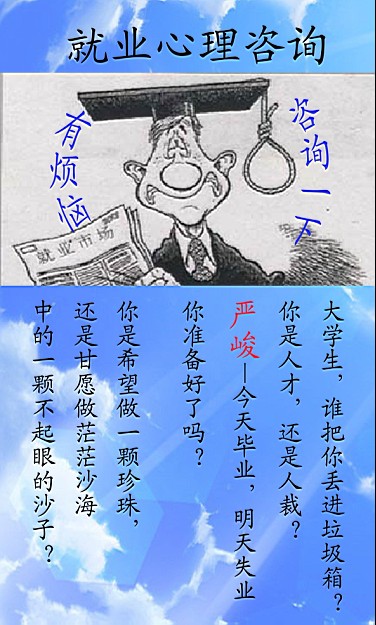 就业心理咨询
有烦恼
咨询一下
就业市场
大学生，谁把你丢进垃圾箱？
你是人才，还是人裁？
严峻—今天毕业，明天失业
你准备好了吗？
你是希望做一颗珍珠，
还是甘愿做茫茫沙海
中的一颗不起眼的沙子？